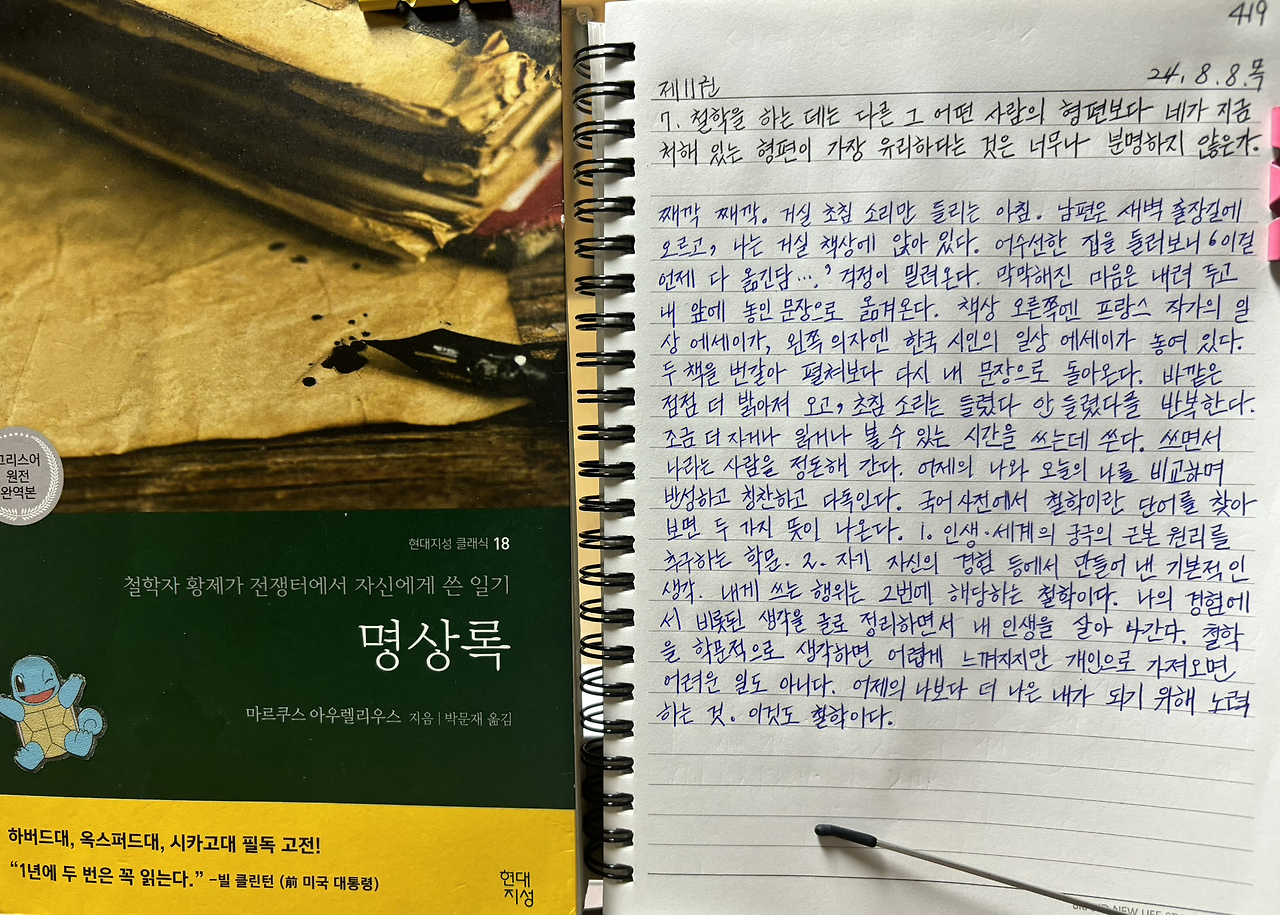 그리스어
원전
완역본
현대지성 클래식 18
철학자 황제가 전쟁터에서 자신에게 쓴 일기
명상록
마르쿠스 아우렐리우스 지음 | 박문재 옮김
하버드대, 옥스퍼드대, 시카고대 필독 고전!
“1년에 두 번은 꼭 읽는다.” -빌 클린턴 (前 미국 대통령)
현대
지성
419
24. 8. 8. 목
제11권
7. 철학을 하는 데는 다른 그 어떤 사람의 형편보다 네가 지금
처해 있는 형편이 가장 유리하다는 것은 너무나 분명하지 않은가.
째깍 째깍. 거실 초침 소리만 들리는 아침. 남편은 새벽 출장길에
오르고, 나는 거실 책상에 앉아 있다. 어수선한 집을 둘러보니 ‘이걸
언제 다 옮긴담….’ 걱정이 밀려온다. 막막해진 마음은 내려 두고
내 앞에 놓인 문장으로 옮겨온다. 책상 오른쪽엔 프랑스 작가의 일
상 에세이가, 왼쪽 의자엔 한국 시인의 일상 에세이가 놓여 있다.
두 책을 번갈아 펼쳐보다 다시 내 문장으로 돌아온다. 바깥은
점점 더 밝아져 오고, 초침 소리는 들렸다 안 들렸다를 반복한다.
조금 더 자거나 읽거나 볼 수 있는 시간을 쓰는데 쓴다. 쓰면서
나라는 사람을 정돈해 간다. 어제의 나와 오늘의 나를 비교하며
반성하고 칭찬하고 다독인다. 국어사전에서 철학이란 단어를 찾아
보면 두 가지 뜻이 나온다. 1. 인생·세계의 궁극의 근본 원리를
추구하는 학문. 2. 자기 자신의 경험 등에서 만들어 낸 기본적인
생각. 내게 쓰는 행위는 2번에 해당하는 철학이다. 나의 경험에
서 비롯된 생각을 글로 정리하면서 내 인생을 살아 나간다. 철학
을 학문적으로 생각하면 어렵게 느껴지지만 개인으로 가져오면
어려운 일도 아니다. 어제의 나보다 더 나은 내가 되기 위해 노력
하는 것. 이것도 철학이다.